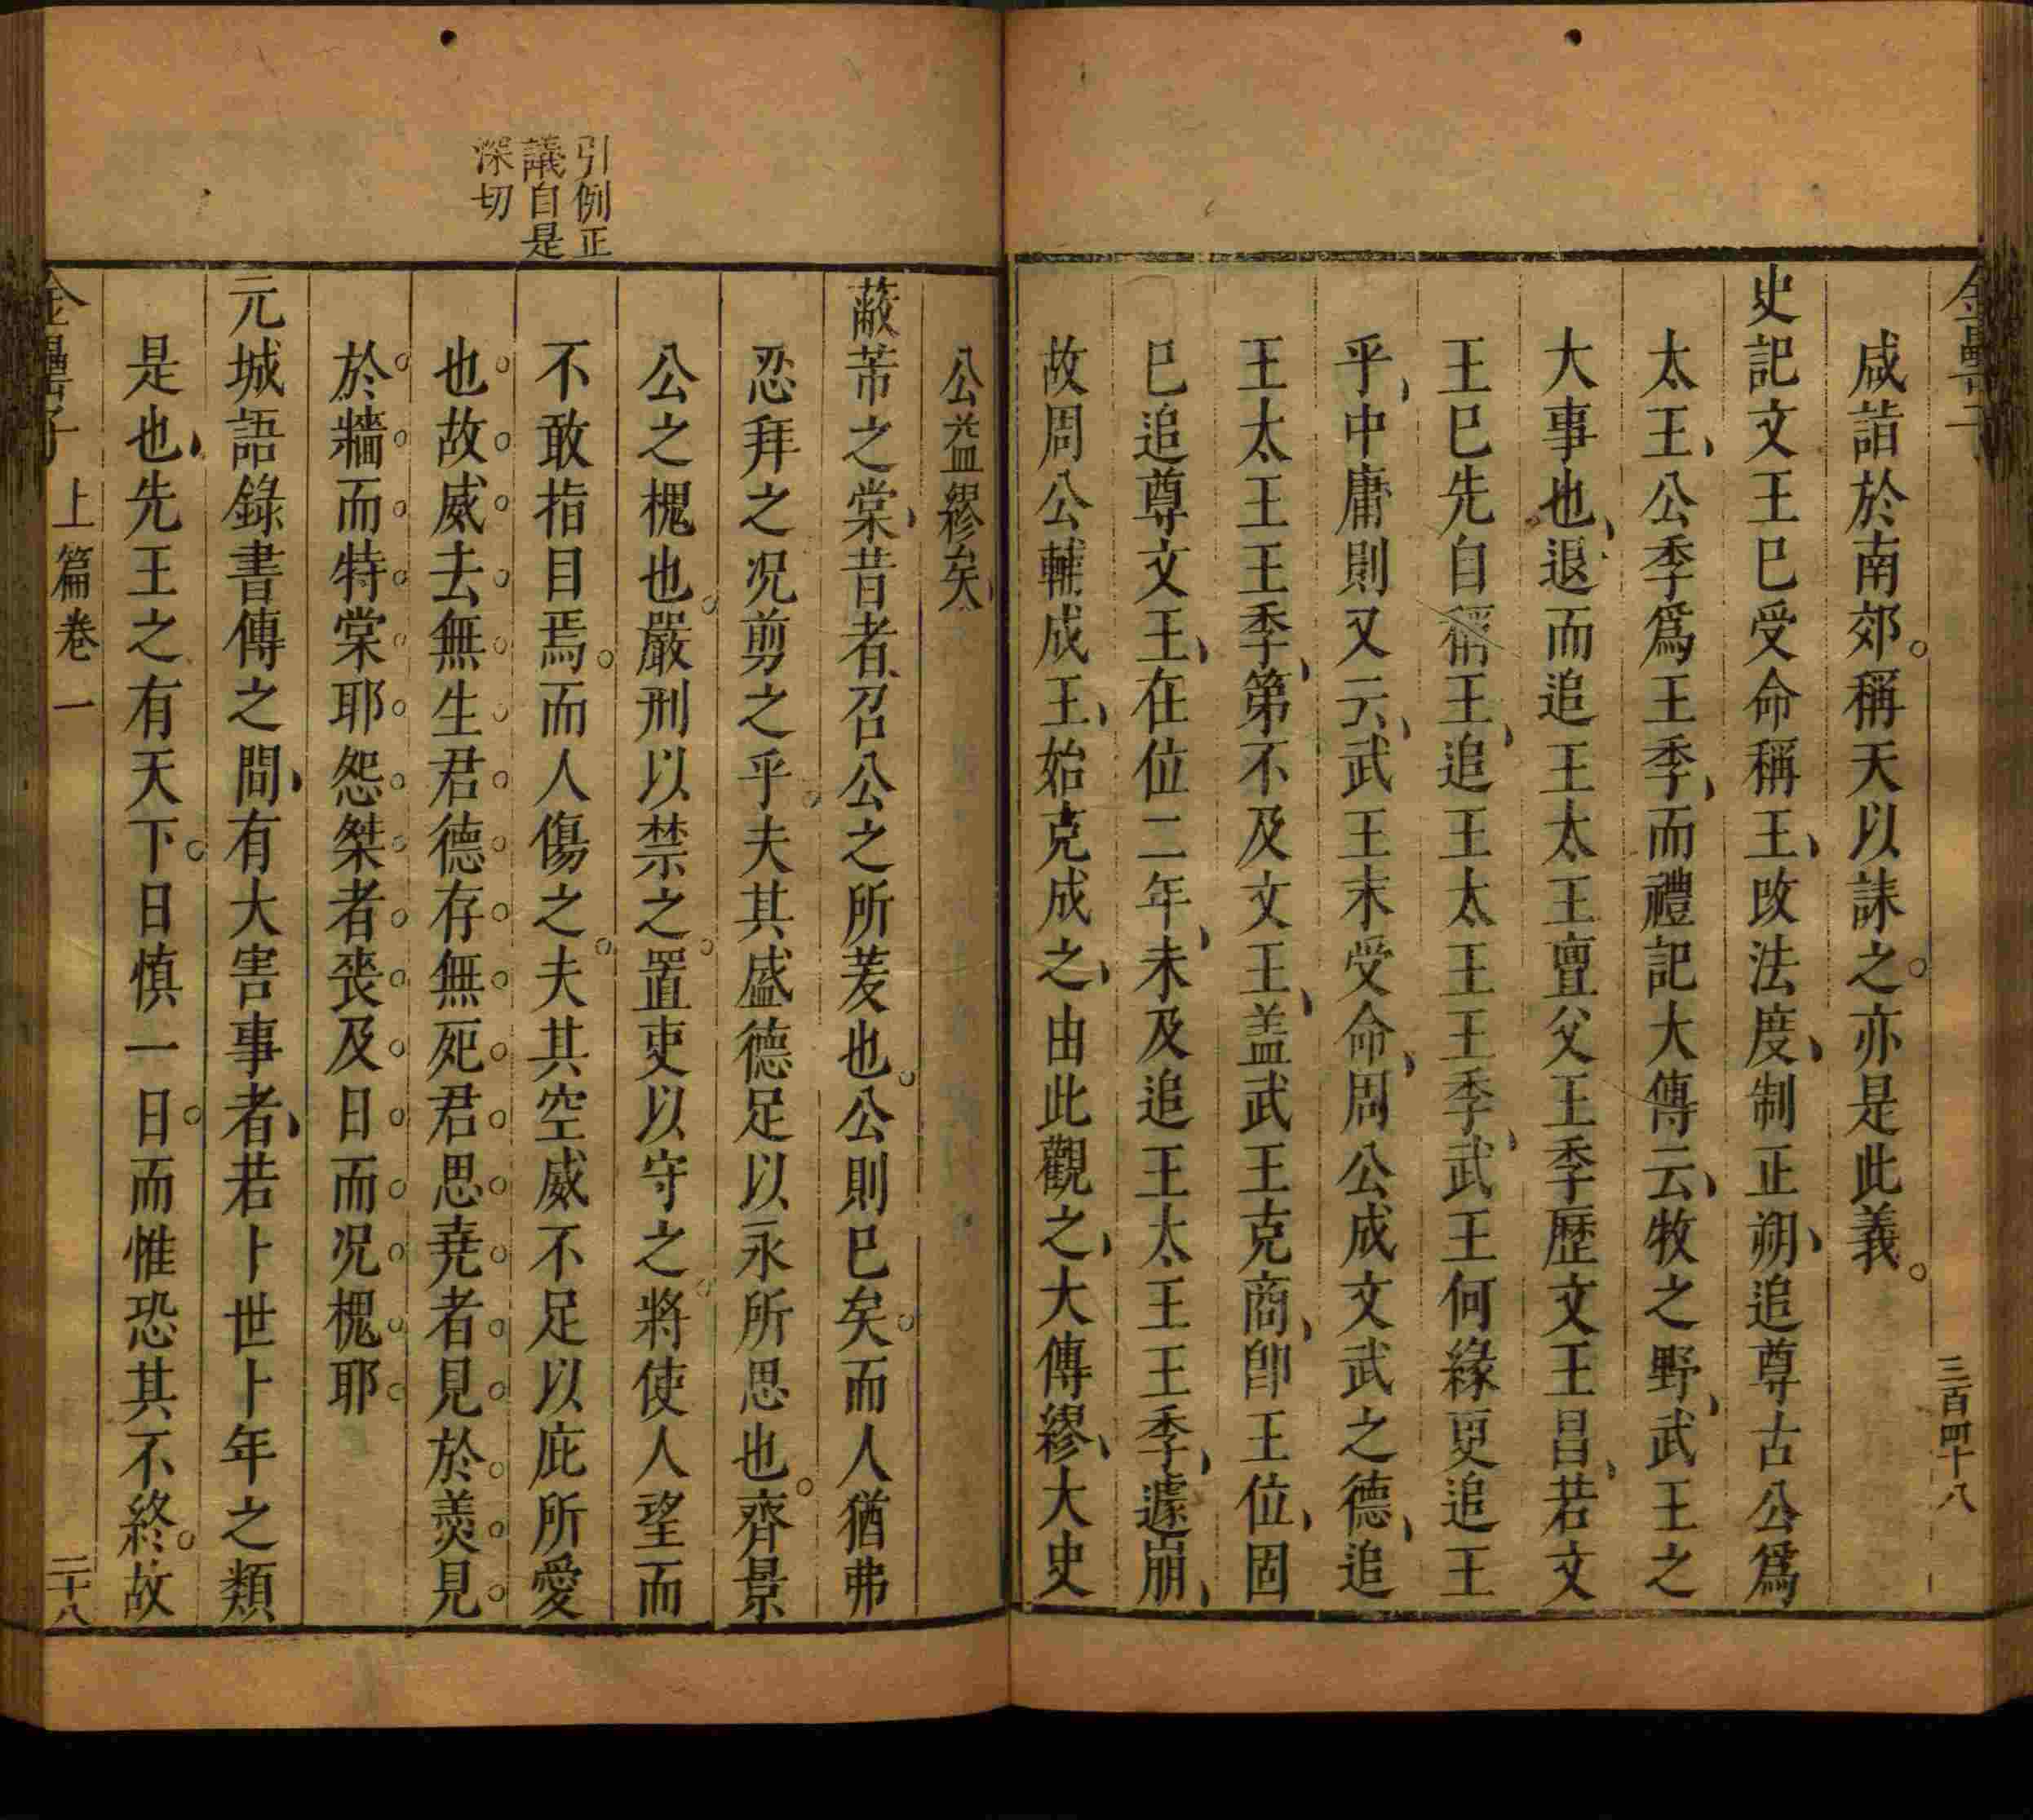 金罍子
三百四十八
咸詣於南郊稱天以誄之亦是此義
史記文王巳受命稱王改法度制正朔追尊古公爲
太王公季爲王季而禮記大傳云牧之野武王之
大事也退而追王太王亶父王季歷文王昌若文
王巳先自稱王追王太王王季武王何緣更追王
乎中庸則又云武王末受命周公成文武之德追
王太王王季第不及文王盖武王克商卽王位固
巳追尊文王在位二年未及追王太王王季遽崩
故周公輔成王始克成之由此觀之大傳繆大史
公益繆矣
蔽芾之棠昔者召公之所茇也公則巳矣而人猶弗
忍拜之况剪之乎夫其盛德足以永所思也齊景
公之槐也嚴刑以禁之置吏以守之將使人望而
不敢指目焉而人傷之夫其空威不足以庇所愛
也故威去無生君德存無死君思堯者見於羹見
於牆而特棠耶怨桀者喪及日而况槐耶
元城語錄書傳之間有大害事者若卜世卜年之類
是也先王之有天下日慎一日而惟恐其不終故
引例正
議自是
深切
金罍子
上篇卷一
二十八